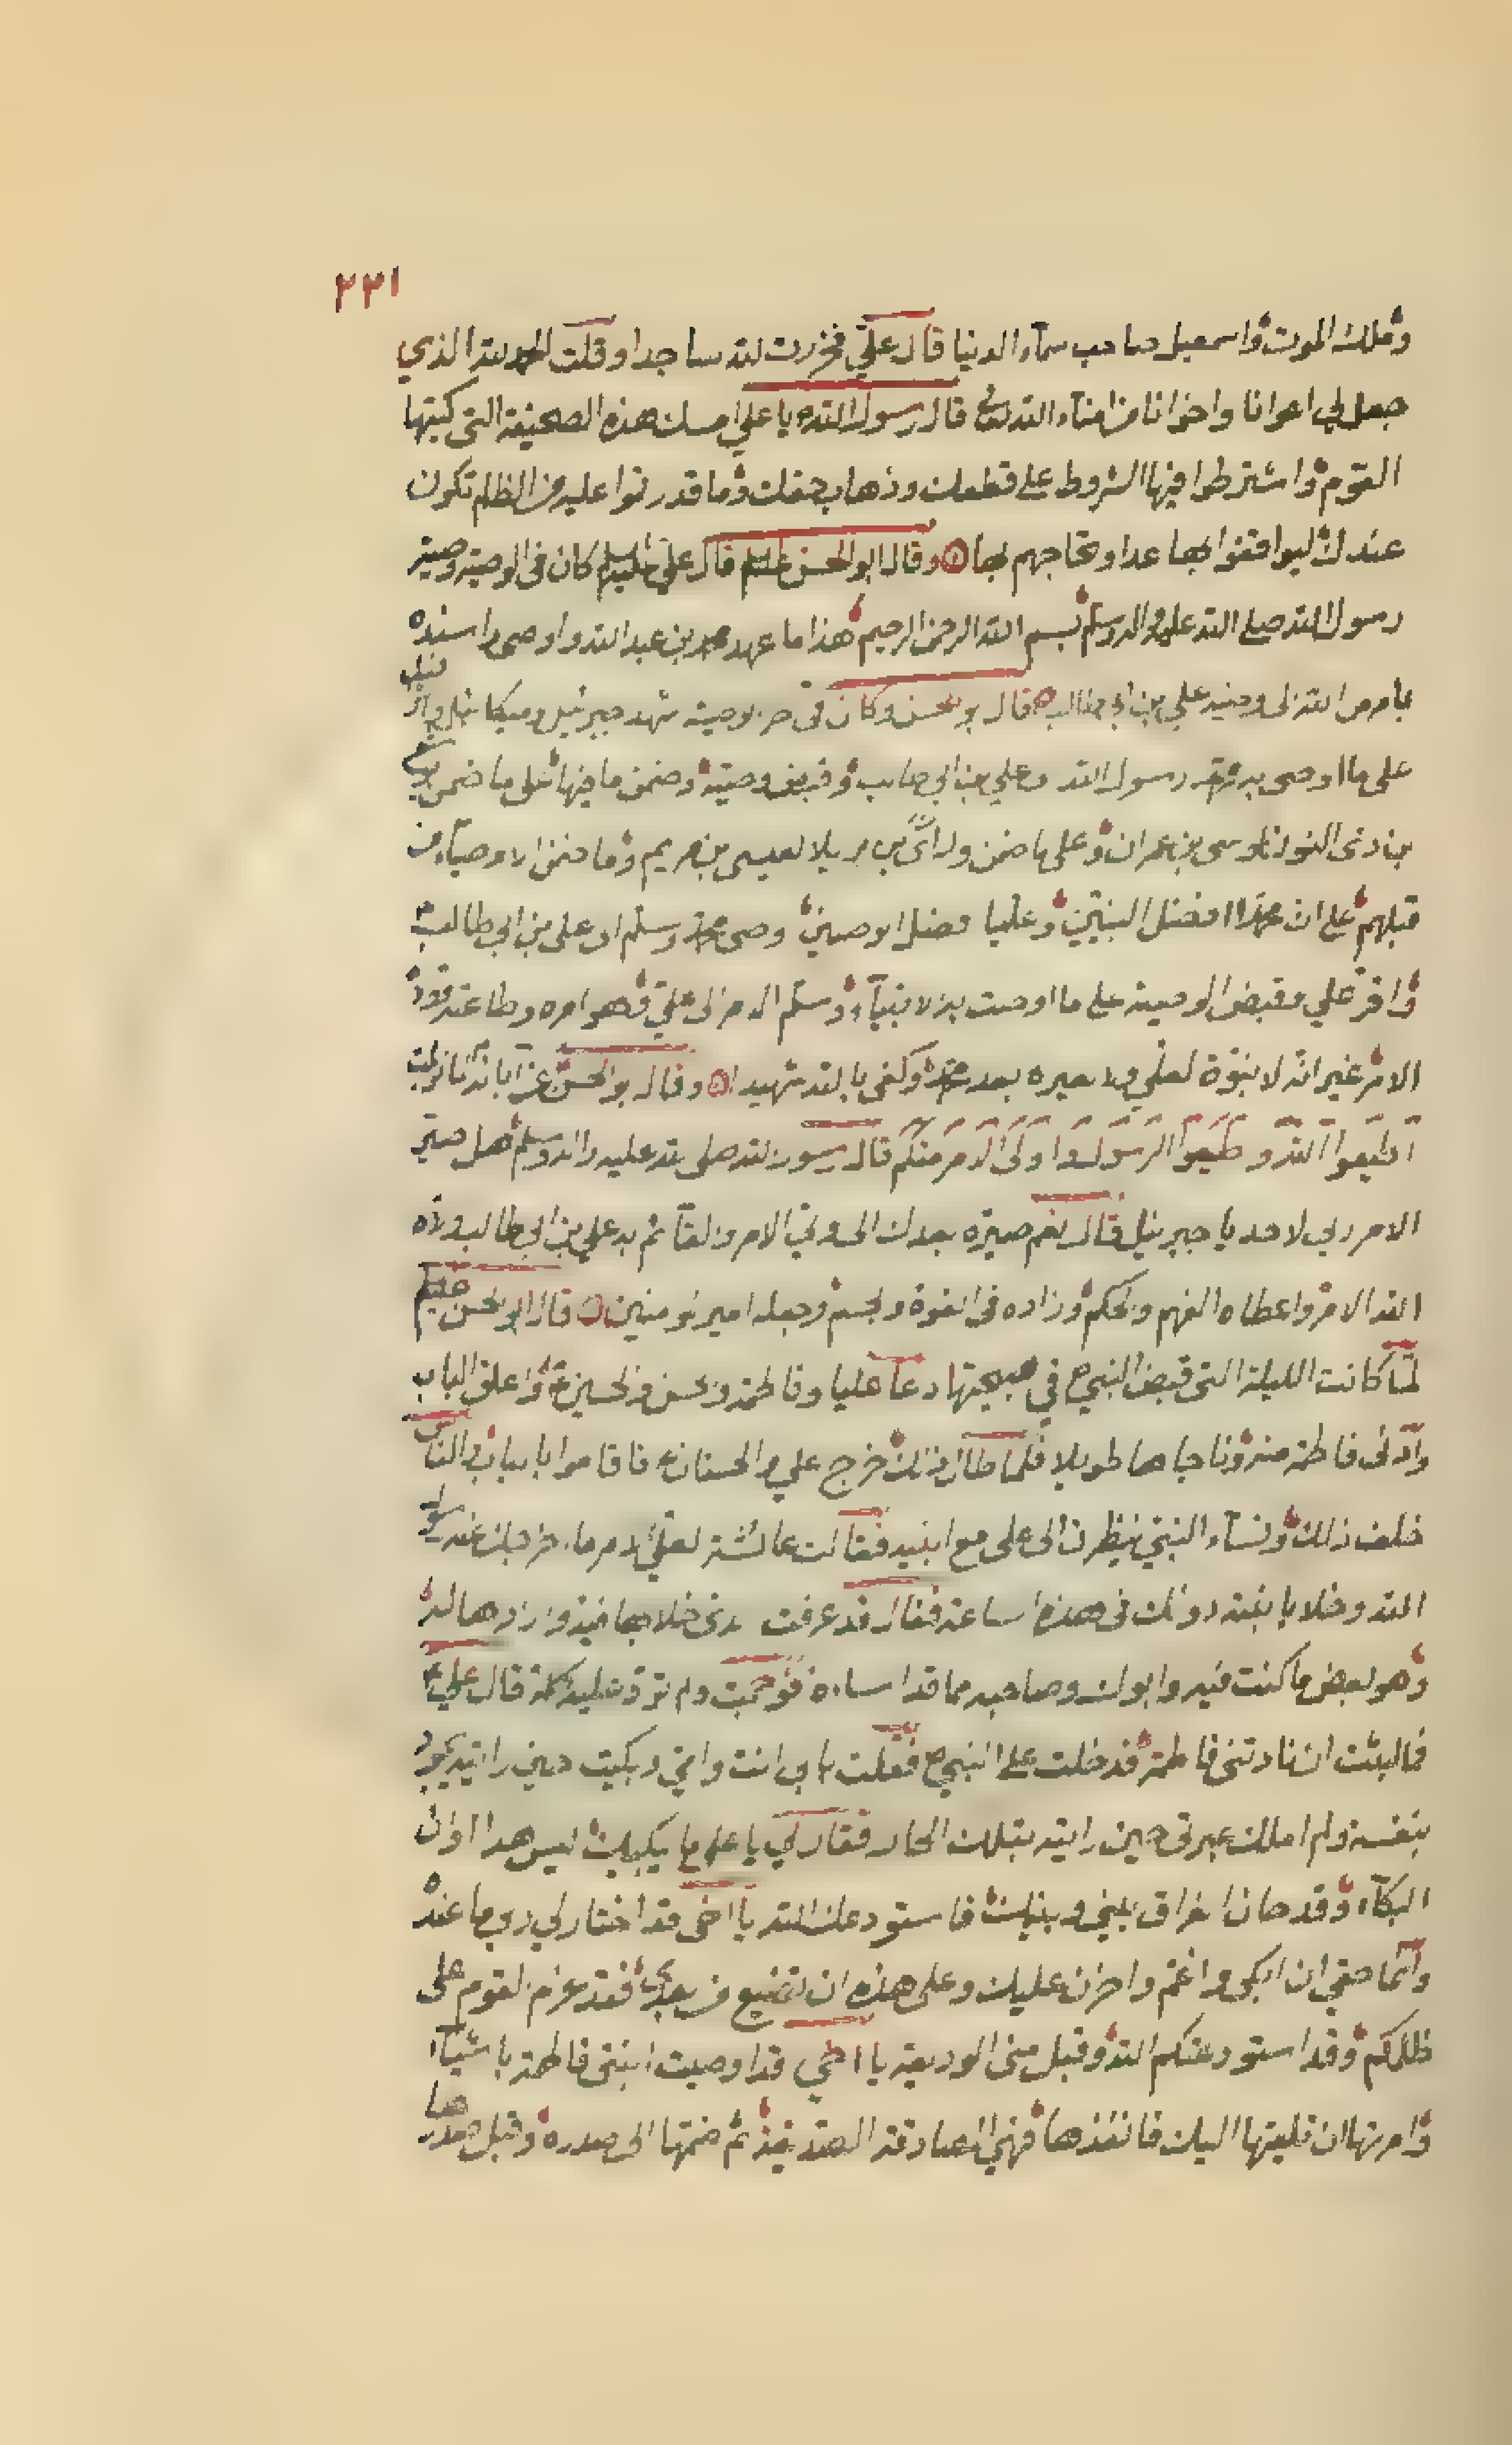 ٢٣١
وملك الموت واسمعيل صاحب سمآء الدنيا قال علي فخررت لله ساجدا وقلت الحمد لله الذي
جعل لي اعوانا واخوانا من امنآء الله قال رسول الله ص يا علي امسك هذه الصحيفة التى كتبتها
القوم واشترطوا فيها الشروط على قطعك وذهاب حقك وما قدرتوا عليه من الظلم تكون
عندك ليوافقوا بها غدا وتحاجهم بها وقال ابو الحسن عليه السلم قال علي عليه السلم كان فى الوصية وصية
رسول الله صلى الله عليه واله وسلم بسم الله الرحمن الرحيم هذا ما عهد محمد بن عبد الله واوصى واسنده
بامر من الله الى وصيه علي بن ابي طالب قال ابو الحسن وكان فى اخر الوصية شهد جبرئيل وميكائيل واسرافيل
على ما اوصى به محمد رسول الله الى علي بن ابي طالب وقبض وصيته وضمن ما فيها على ما ضمن يوشع
بن نون لموسى بن عمران وعلى ما ضمن واراى بن برملا لعيسى بن مريم وما ضمن الاوصيآء من
قبلهم على ان محمدا افضل النبيين وعليا افضل الوصيين واوصى محمد وسلم الى على بن ابي طالب ع
واقر علي وقبض الوصية على ما اوصت به الانبيآء وسلم الامر الى علي وهو امره وطاعته
الامر غير انه لا نبوة لعلي ولا لغيره بعد محمد وكفى بالله شهيدا وقال ابو الحسن عن آبائه لما نزلت
اطيعوا الله واطيعوا الرسول واولى الامر منكم قال رسول الله صلى الله عليه واله وسلم هل صير
الامر ربى لاحد يا جبرئيل قال نعم صيره بعدك الى ولي الامر والقآئم به علي بن ابي طالب ولاه
الله الامر واعطاه الفهم والحكم وزاده فى القوة والجسم وجعله امير المؤمنين قال ابو الحسن عليه السلم
لما كانت الليلة التى قبض النبي ص في صبيحتها دعا عليا وفاطمة والحسن والحسين ع واغلق الباب
وادنى فاطمة منه وناجاها طويلا فلما طال ذلك خرج علي والحسنان ع فاقاموا بالباب والناس
خلف ذلك ونسآء النبي ينظرن الى على مع ابنيه فقالت عائشة لعلي لامر ما اخرجك عنه رسول
الله وخلا بابنته دونك فى هذه الساعة فقال قد عرفت الذى خلا بها فيه وارادها له
وهو بعض ما كنت فيه وابوك وصاحبه مما قد اساءه فوجمت ولم ترد عليه كلمة قال علي ع
فما لبثت ان نادتنى فاطمة فدخلت على النبي ص فقلت بابي انت وامي وبكيت حين رايته يجود
بنفسه ولم املك عبرتى حين رايته بتلك الحال فقال لي يا على ما يبكيك ليس هذا اوان
البكآء وقد حان الفراق بيني وبينك فاستودعك الله يا اخى فقد اختار لي ربي ما عنده
وانما حقي ان ابكى واغتم واحزن عليك وعلى هذه ان تضيع من بعدي فقد عزم القوم على
ظلمكم وقد استودعتكم الله وقبل منى الوديعة يا اخي قد اوصيت ابنتى فاطمة باشيآء
وامرتها ان تلقيها اليك فانفذها فهي الصادقة الصديقة ثم ضمها الى صدره وقبل صدرها